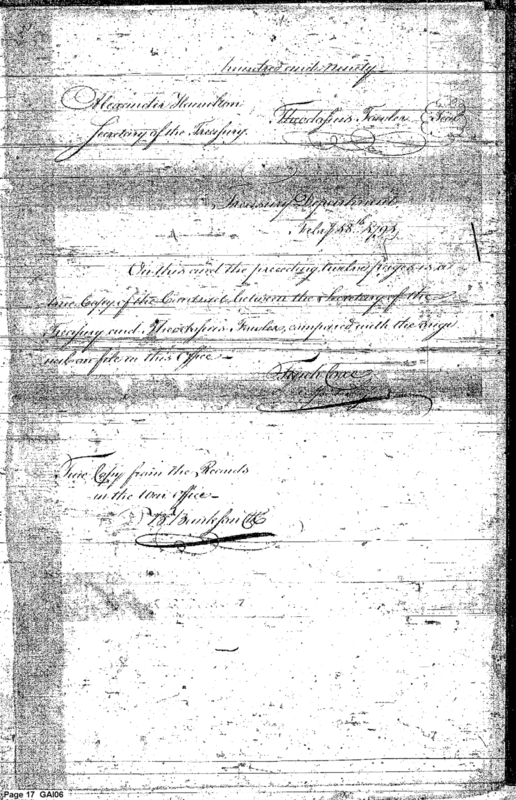 hundred and Ninety
Alexander Hamilton
Theodosius Fowler Seal
Secretary of the Treasury.
Treasury Department
July
On this and the preceding twelve pages is a
true Copy of the Contract between the Secretary of the
Treasury and Theodosius Fowler, compared with the Origi
nal on file in this Office
Tench Coxe
True Copy from the Records
in the War Office
B. Bankson Clk
Page 17 GAI06